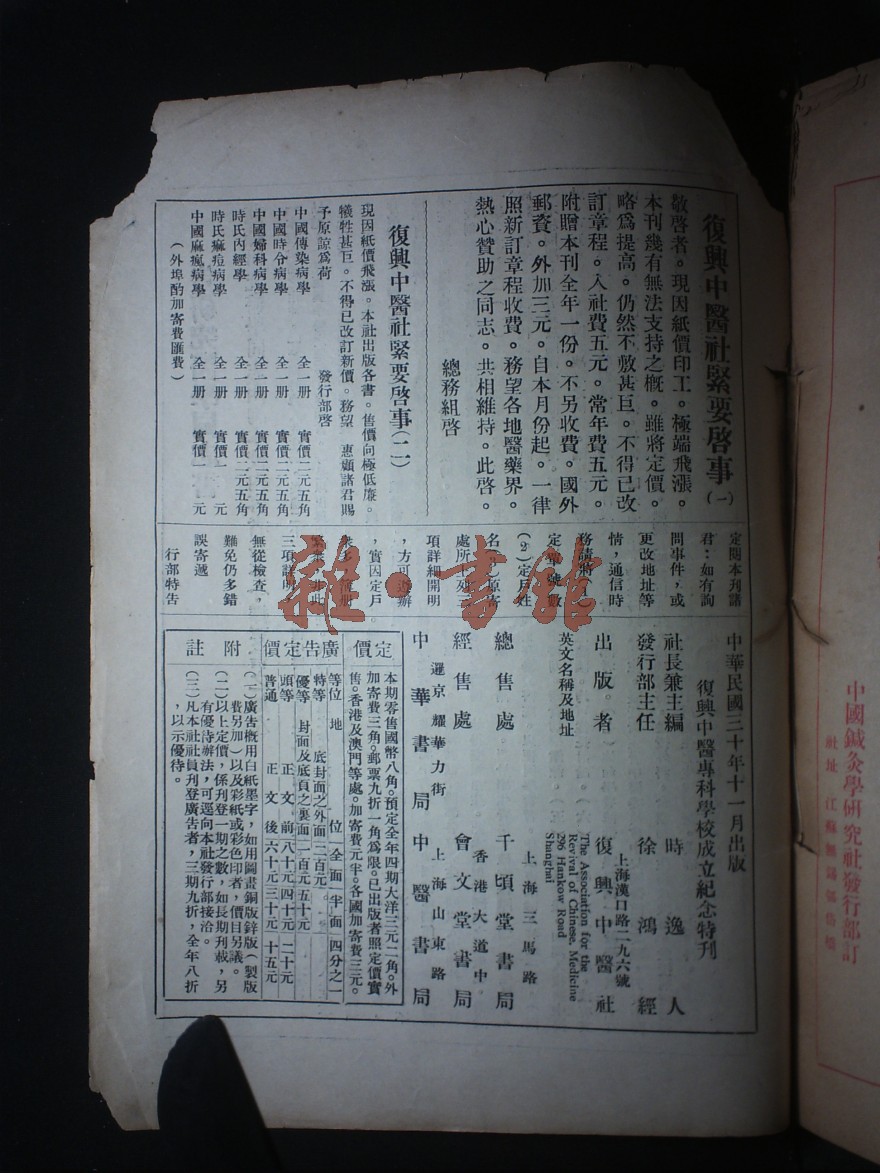 復興中醫社緊要啓事(一)
敬啓者。現因紙價印工。極端飛漲。
本刊幾有無法支持之慨。雖將定價。
略爲提高。仍然不敷甚巨。不得已改
訂章程。入社費五元。常年費五元。
附贈本刊全年一份。不另收費。國外
郵資。外加三元。自本月份起。一律
照新訂章程收費。務望各地醫藥界。
熱心贊助之同志。共相維持。此啓。
總務組啓
復興中醫社緊要啓事(二)
現因紙價飛漲。本社出版各書。售價向極低廉。
犧牲甚巨。不得已改訂新價。務望 惠顧諸君賜
予原諒爲荷 發行部啓
中國傳染病學 全一册 實價二元五角
中國時令病學 全一册 實價二元五角
中國婦科病學 全一册 實價二元五角
時氏內經學 全一册 實價二元五角
時氏麻痘病學 全一册 實價一元
中國麻瘋病學 全一册 實價一元
(外埠酌加寄費匯費)
定閱本刊諸
君:如有詢
問事件,或
更改地址等
情,通信時
務請將
定單號數
(2)定戶姓
名 原寄
處所
項詳細開明
,方可遵辦
,實因定戶
三項詳明
無從檢查,
難免仍多錯
誤寄遞
行部特告
中華民國三十年十一月出版
復興中醫專科學校成立紀念特刊
社長兼主編 時逸人
發行部主任 徐鴻經
出版者 復興中醫社
上海漢口路二九六號
英文名稱及地址
The Association for the
Revival of Chinese, Medicine
296 Hankow Road
Shanghai
總售處 千頃堂書局
上海三馬路
經售處 會文堂書局
香港大道中
暹京耀華力街 上海山東路
中華書局 中醫書局
定價
本期零售國幣八角。預定全年四期大洋三元二角。外
加寄費三角。郵票九折一角為限。已出版者照定價實
售。香港及澳門等處。加寄費元半。各國加寄費三元。
廣告定價
等位 地位 全面 半面 四分之一
特等 底封面之外面 二百元
優等 封面及底頁之裏面 一百元 五十元
頭等 正文前 八十元 四十元 二十元
普通 正文後 六十元 三十元 十五元
附註
(一)廣告概用白紙墨字,如用圖畫銅版鋅版(製版
費另加)以及彩紙或彩色印者,價目另議。
(二)以上定價,係刊登一期之數,如長期刊載,另
有優待辦法,可逕向本社發行部接洽。
(三)凡本社社員刊登廣告者,三期九折,全年八折
,以示優待。
中國鍼灸學研究社發行部訂
社址 江蘇無錫
雜·書館